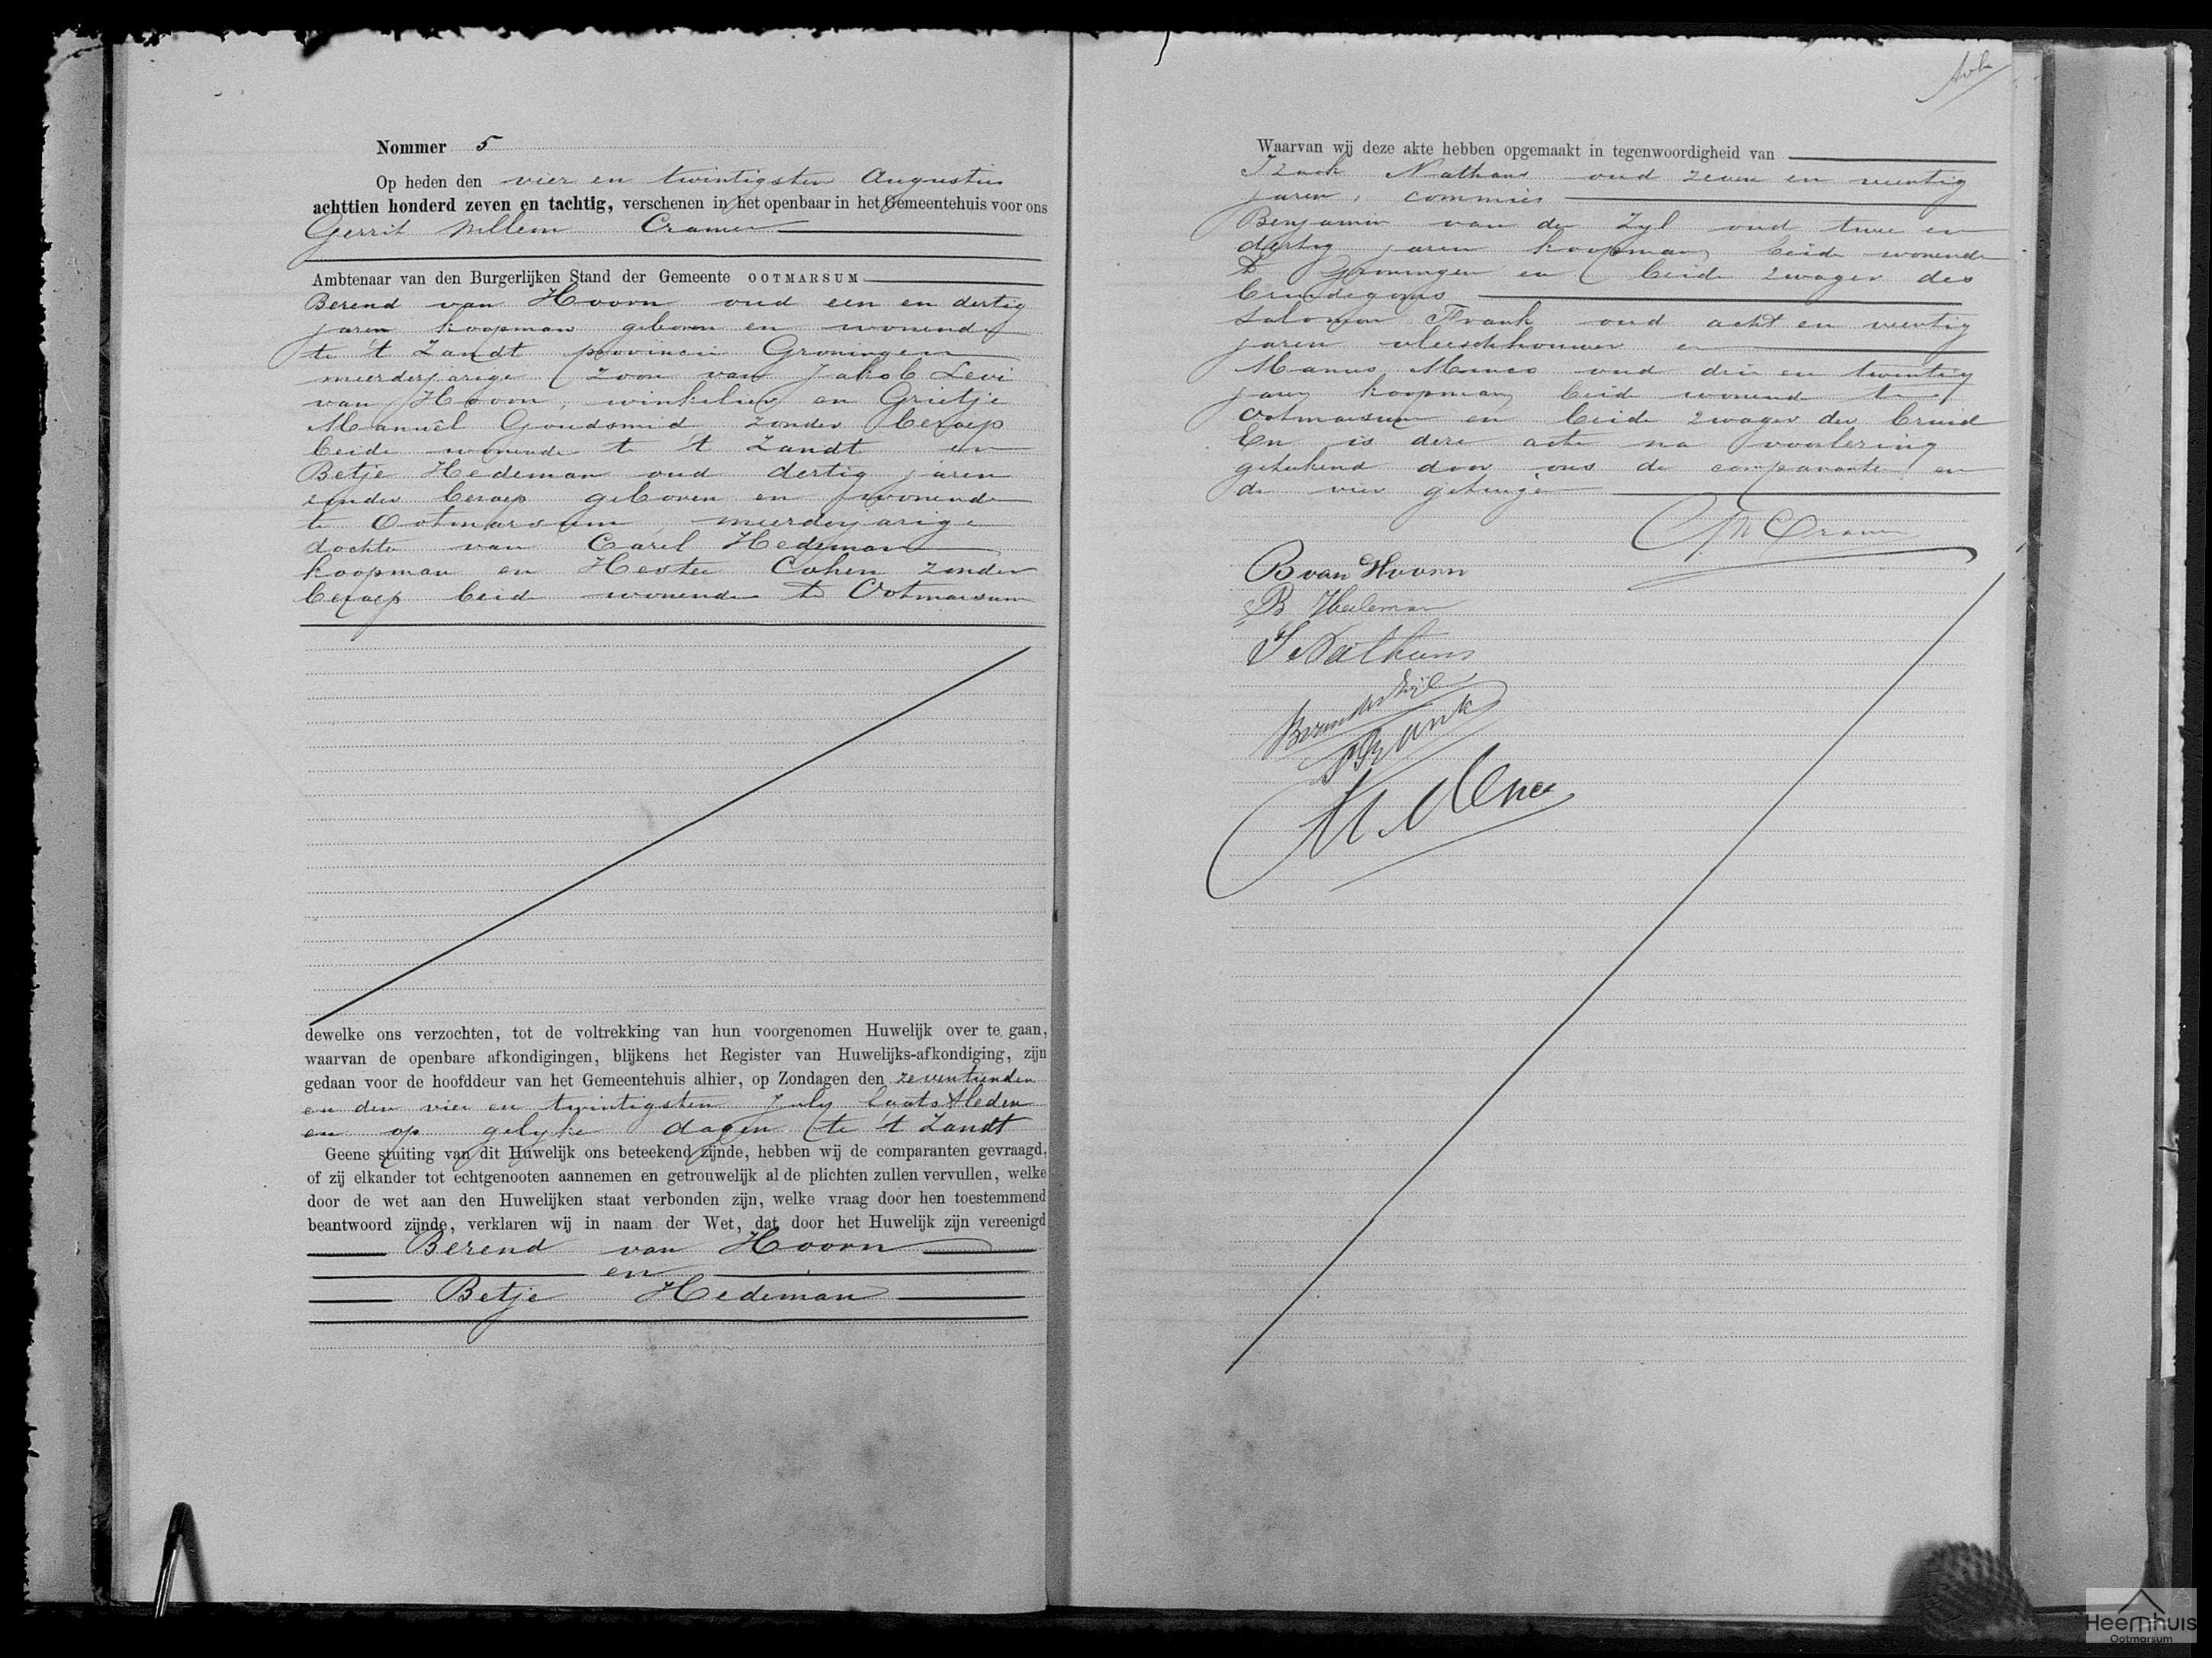 Nommer 5
Op heden den vier en twintigsten Augustus
achttien honderd zeven en tachtig, verschenen in het openbaar in het Gemeentehuis voor ons
Gerrit Willem Cramer
Ambtenaar van den Burgerlijken Stand der Gemeente OOTMARSUM
Berend van Hoorn oud een en dertig
jaren koopman geboren en wonende
te 't Zandt provincie Groningen
meerderjarige zoon van Jakob Levi
van Hoorn, winkelier en Grietje
Manuël Goudsmid zonder beroep
beide wonende te 't Zandt en
Betje Hedeman oud dertig jaren
zonder beroep geboren en wonende
te Ootmarsum, meerderjarige
dochter van Carel Hedeman
koopman en Hester Cohen zonder
beroep beide wonende te Ootmarsum
dewelke ons verzochten, tot de voltrekking van hun voorgenomen Huwelijk over te gaan,
waarvan de openbare afkondigingen, blijkens het Register van Huwelijks-afkondiging, zijn
gedaan voor de hoofddeur van het Gemeentehuis alhier, op Zondagen den zeventienden
en den vier en twintigsten July laatstleden
en op gelyke dagen te 't Zandt
Geene stuiting van dit Huwelijk ons beteekend zijnde, hebben wij de comparanten gevraagd,
of zij elkander tot echtgenooten aannemen en getrouwelijk al de plichten zullen vervullen, welke
door de wet aan den Huwelijken staat verbonden zijn, welke vraag door hen toestemmend
beantwoord zijnde, verklaren wij in naam der Wet, dat door het Huwelijk zijn vereenigd
Berend van Hoorn
en
Betje Hedeman
Waarvan wij deze akte hebben opgemaakt in tegenwoordigheid van
Izaak Nathans oud zeven en veertig
jaren, commies
Benjamin van der Zyl oud twee en
dertig jaren koopman, beide wonende
te Groningen en beide zwager des
bruidegoms
Salomon Frank oud acht en veertig
jaren vleeschhouwer en
Manus Menco oud drie en twintig
jaren koopman, beide wonende te
Ootmarsum en beide zwager der bruid
En is deze acte na voorlezing
geteekend door ons de comparanten en
de vier getuigen
GW Cramer
B van Hoorn
B Hedeman
I Nathans
B van der Zijl
S Frank
M Menco
Heemhuis
Ootmarsum